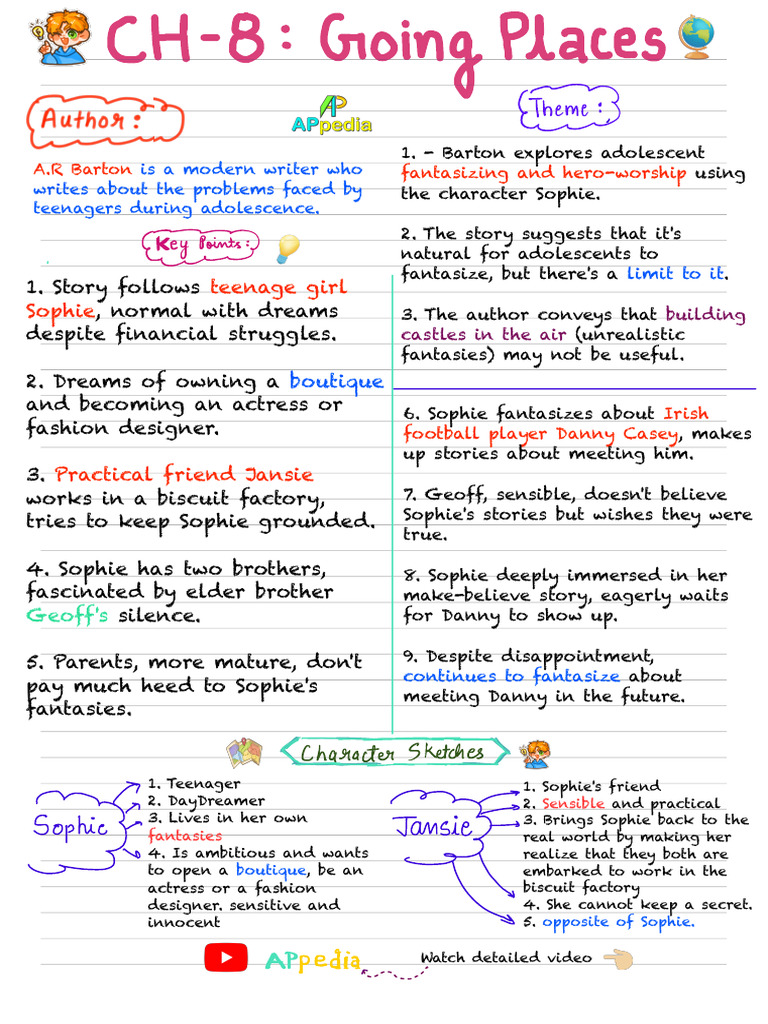 CH-8: Going Places
Author:
APpedia
A.R Barton is a modern writer who
writes about the problems faced by
teenagers during adolescence.
Key Points:
1. Story follows teenage girl
Sophie, normal with dreams
despite financial struggles.
2. Dreams of owning a boutique
and becoming an actress or
fashion designer.
3. Practical friend Jansie
works in a biscuit factory,
tries to keep Sophie grounded.
4. Sophie has two brothers,
fascinated by elder brother
Geoff's silence.
5. Parents, more mature, don't
pay much heed to Sophie's
fantasies.
Theme:
1. - Barton explores adolescent
fantasizing and hero-worship using
the character Sophie.
2. The story suggests that it's
natural for adolescents to
fantasize, but there's a limit to it.
3. The author conveys that building
castles in the air (unrealistic
fantasies) may not be useful.
6. Sophie fantasizes about Irish
football player Danny Casey, makes
up stories about meeting him.
7. Geoff, sensible, doesn't believe
Sophie's stories but wishes they were
true.
8. Sophie deeply immersed in her
make-believe story, eagerly waits
for Danny to show up.
9. Despite disappointment,
continues to fantasize about
meeting Danny in the future.
Character Sketches
Sophie
1. Teenager
2. DayDreamer
3. Lives in her own
fantasies
4. Is ambitious and wants
to open a boutique, be an
actress or a fashion
designer. sensitive and
innocent
Jansie
1. Sophie's friend
2. Sensible and practical
3. Brings Sophie back to the
real world by making her
realize that they both are
embarked to work in the
biscuit factory
4. She cannot keep a secret.
5. opposite of Sophie.
APpedia
Watch detailed video